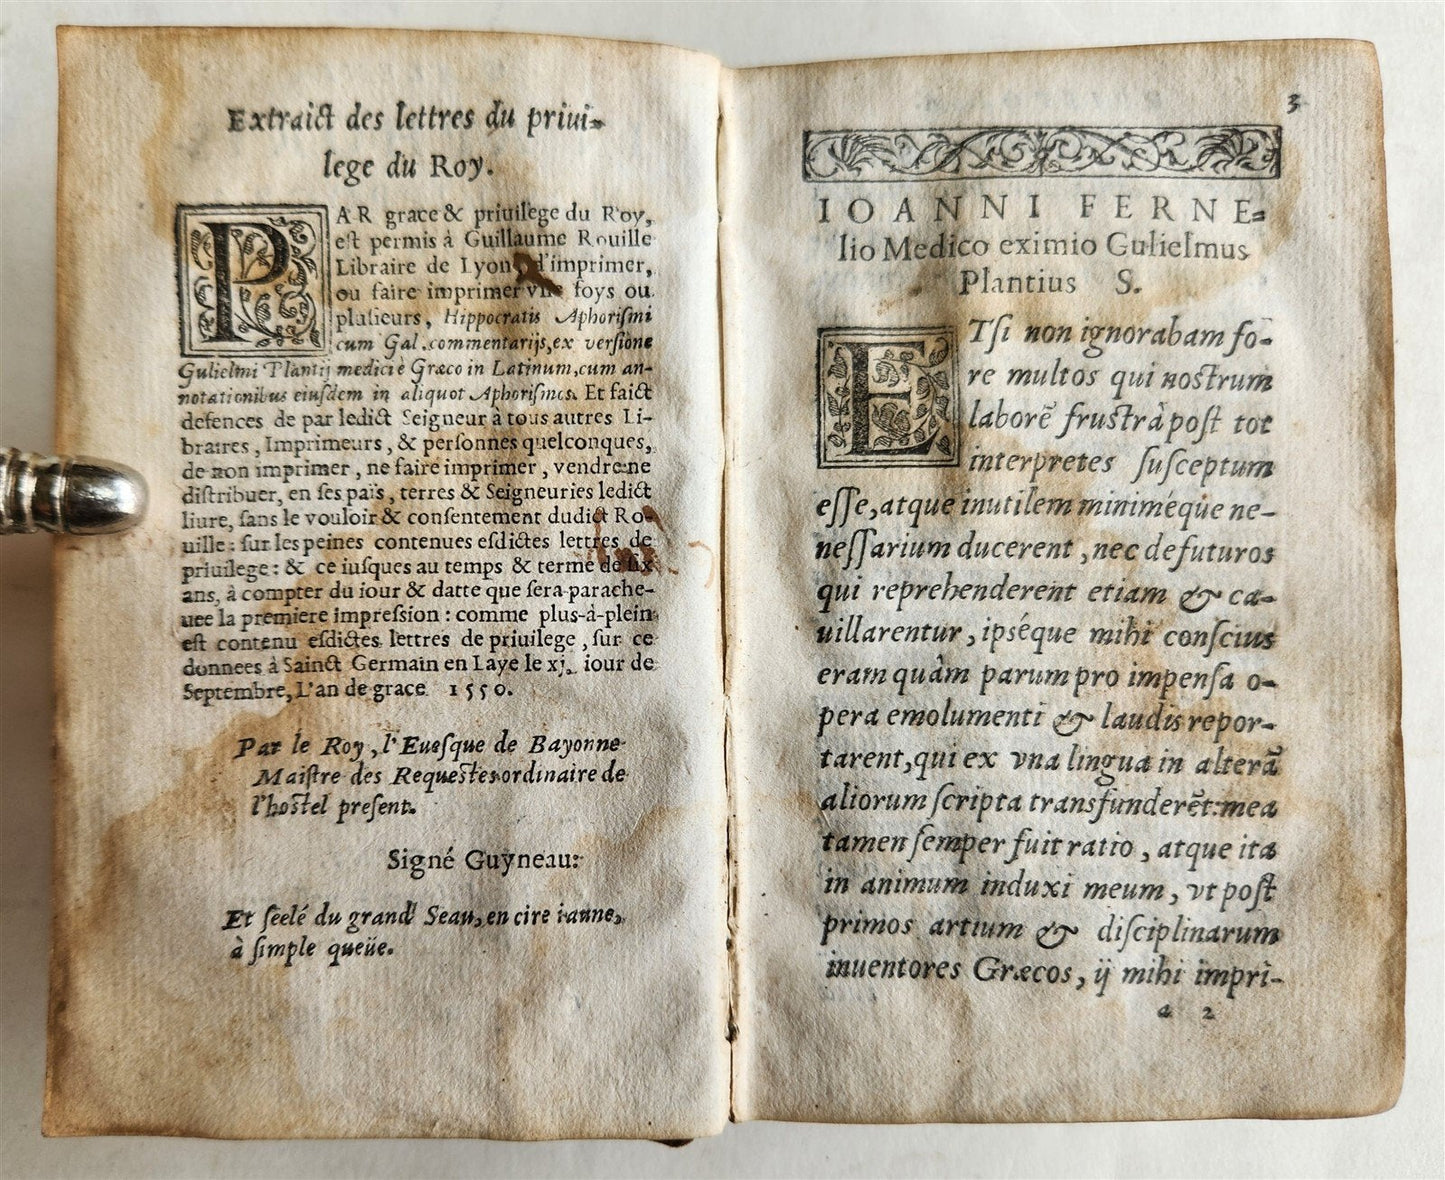 Extraict des lettres du priui-
lege du Roy.
PAR grace & priuilege du Roy,
est permis à Guillaume Rouille
Libraire de Lyon d'imprimer,
ou faire imprimer vne foys ou
plusieurs, Hippocratis Aphorismi
cum Gal. commentarijs, ex versione
Gulielmi Plantij medici è Græco in Latinum, cum an-
notationibus eiusdem in aliquot Aphorismos. Et faict
defences de par ledict Seigneur à tous autres Li-
braires, Imprimeurs, & personnes quelconques,
de non imprimer, ne faire imprimer, vendre ne
distribuer, en ses païs, terres & Seigneuries ledict
liure, sans le vouloir & consentement dudict Ro-
uille: sur les peines contenues esdictes lettres de
priuilege: & ce iusques au temps & terme de six
ans, à compter du iour & datte que sera parache-
uee la premiere impression: comme plus-à-plein
est contenu esdictes lettres de priuilege, sur ce
donnees à Sainct Germain en Laye le xj. iour de
Septembre, L'an de grace 1550.
Par le Roy, l'Euesque de Bayonne
Maistre des Requestes ordinaire de
l'hostel present.
Signé Guyneau:
Et seelé du grand Seau, en cire iaune,
à simple queüe.
3
IOANNI FERNE-
lio Medico eximio Gulielmus
Plantius S.
ETsi non ignorabam fo-
re multos qui nostrum
laborẽ frustrà post tot
interpretes susceptum
esse, atque inutilem miniméque ne-
nessarium ducerent, nec defuturos
qui reprehenderent etiam & ca-
uillarentur, ipséque mihi conscius
eram quàm parum pro impensa o-
pera emolumenti & laudis repor-
tarent, qui ex vna lingua in alterã
aliorum scripta transfunderẽt: mea
tamen semper fuit ratio, atque ita
in animum induxi meum, vt post
primos artium & disciplinarum
inuentores Græcos, ij mihi impri-
a 2